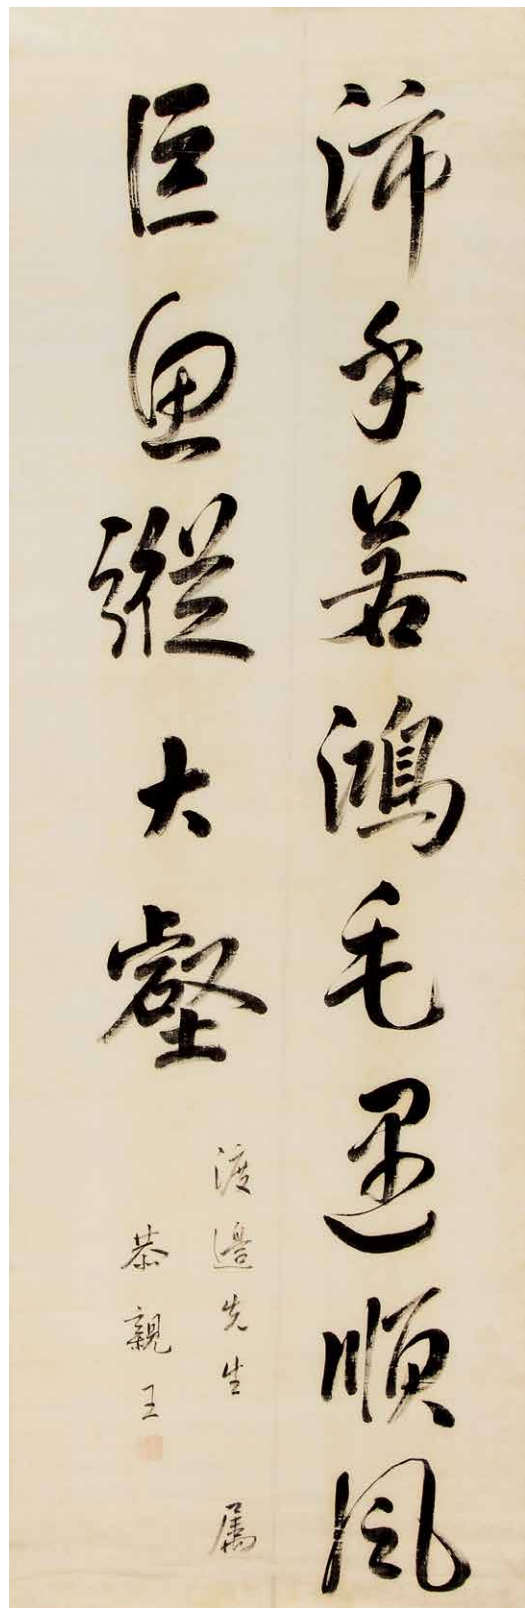 沛乎若鴻毛遇順風
巨魚縱大壑
渡邉先生 属
恭親王